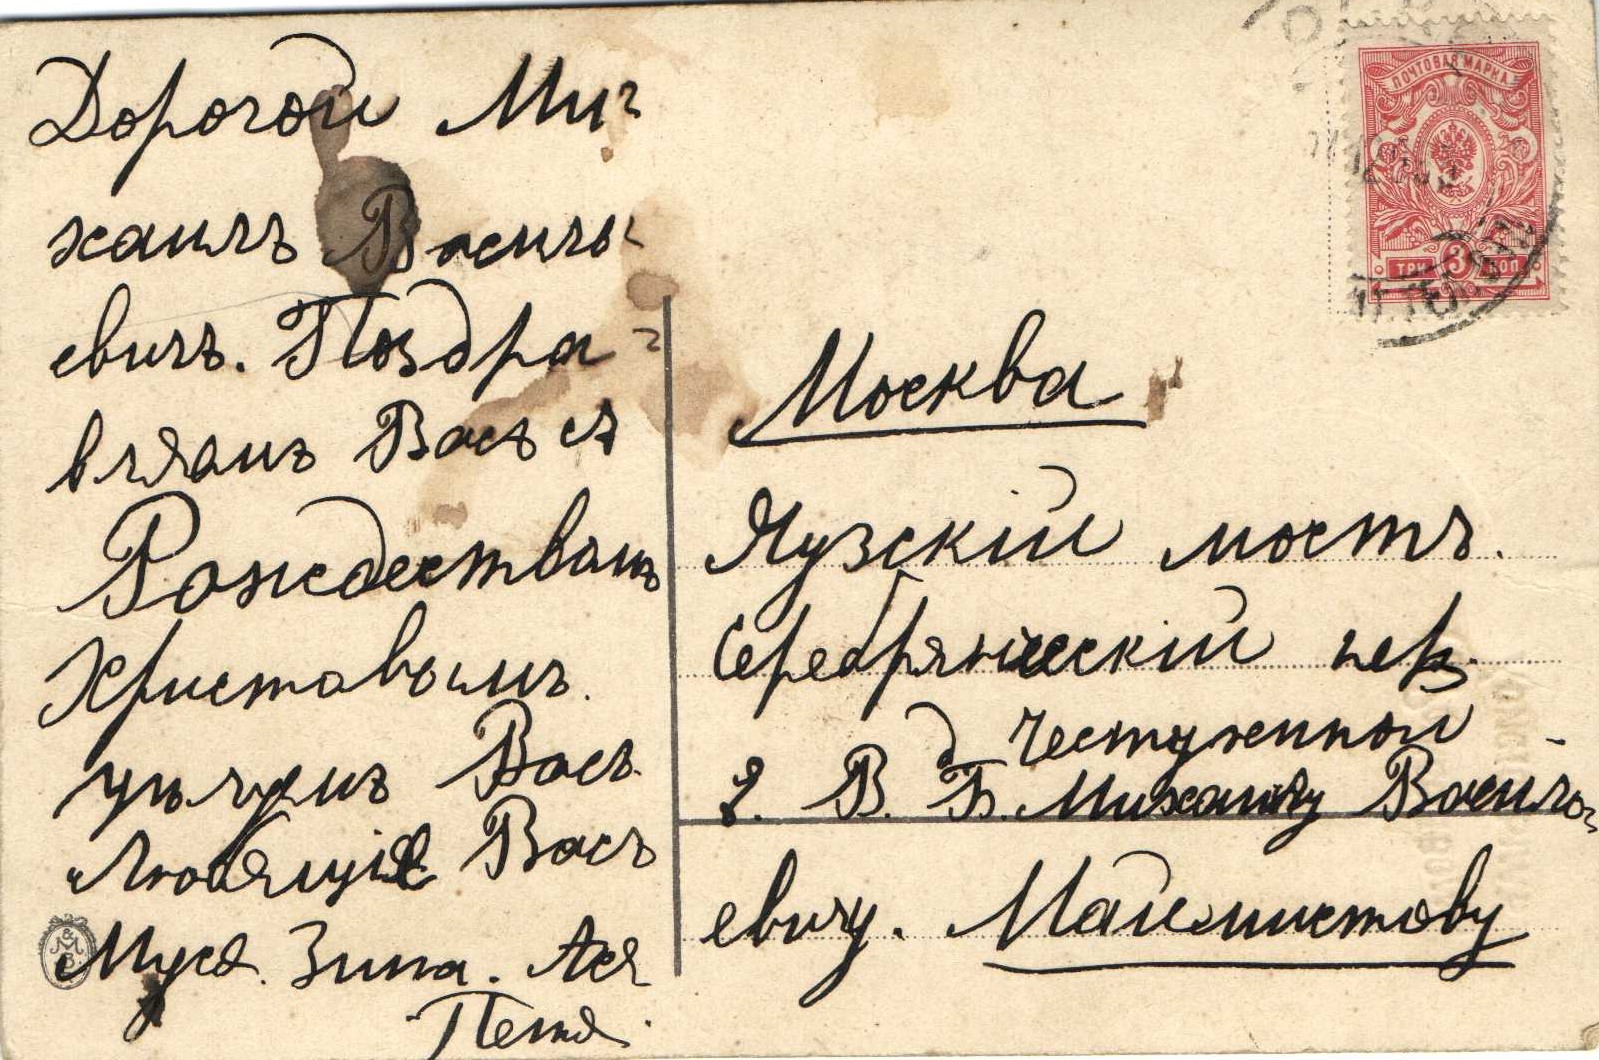 Дорогой Ми-
хаилъ Василь-
евичъ. Поздра-
вляемъ Васъ съ
Рождествомъ
Христовымъ.
цѣлуемъ Васъ
Любящіе Васъ
Муся. Зина. Ася
Петя.
ПОЧТОВАЯ МАРКА
ТРИ 3 КОП
Москва
Яузскій мостъ.
Серебрянческій пер.
д
Е. В. Б. Михаилу Василь-
евичу.